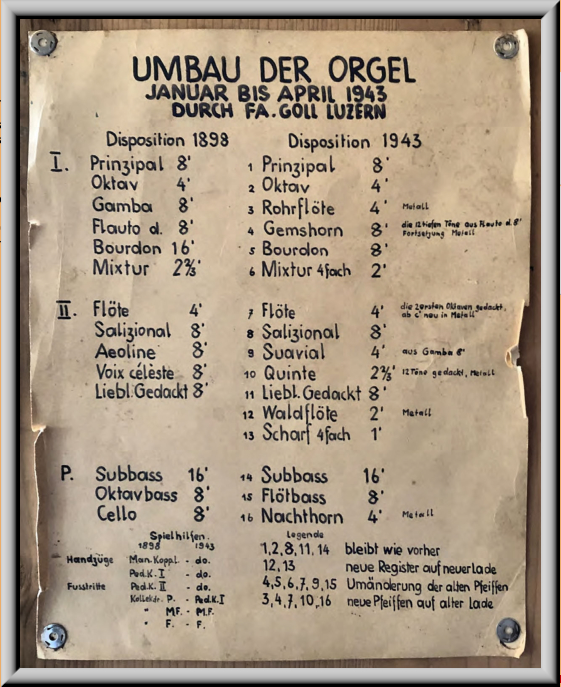 UMBAU DER ORGEL
JANUAR BIS APRIL 1943
DURCH FA. GOLL LUZERN
Disposition 1898 Disposition 1943
I. Prinzipal 8' 1 Prinzipal 8'
Oktav 4' 2 Oktav 4'
Gamba 8' 3 Rohrflöte 4' Metall
Flauto d. 8' 4 Gemshorn 8' die 12 tiefen Töne aus Flauto d. 8'
Fortsetzung Metall
Bourdon 16' 5 Bourdon 8'
Mixtur 2⅔' 6 Mixtur 4fach 2'
II. Flöte 4' 7 Flöte 4' die 2 ersten Oktaven gedackt,
ab c' neu in Metall
Salizional 8' 8 Salizional 8'
Aeoline 8' 9 Suavial 4' aus Gamba 8'
Voix célèste 8' 10 Quinte 2⅔' 12 Töne gedackt, Metall
Liebl. Gedackt 8' 11 Liebl. Gedackt 8'
12 Waldflöte 2' Metall
13 Scharf 4fach 1'
P. Subbass 16' 14 Subbass 16'
Oktavbass 8' 15 Flötbass 8'
Cello 8' 16 Nachthorn 4' Metall
Spielhilfen.
1898 1943
Handzüge Man. Koppl. - do.
Ped. K. I - do.
Fusstritte Ped. K. II - do.
Kollektdr. P. - Ped. K. I
" MF. - M.F.
" F. - F.
Legende
1,2,8,11,14 bleibt wie vorher
12,13 neue Register auf neuer Lade
4,5,6,7,9,15 Umänderung der alten Pfeiffen
3,4,7,10,16 neue Pfeiffen auf alter Lade